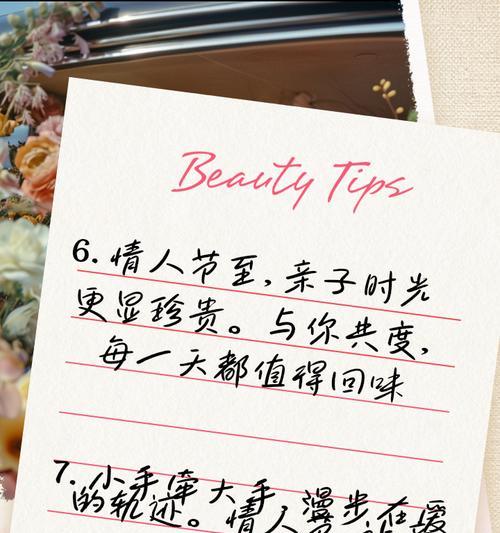 Beauty Tips
6. 情人节至，亲子时光
更显珍贵。与你共度，
每一天都值得回味
7. 小手牵大手，漫步在爱
的轨迹。情人节